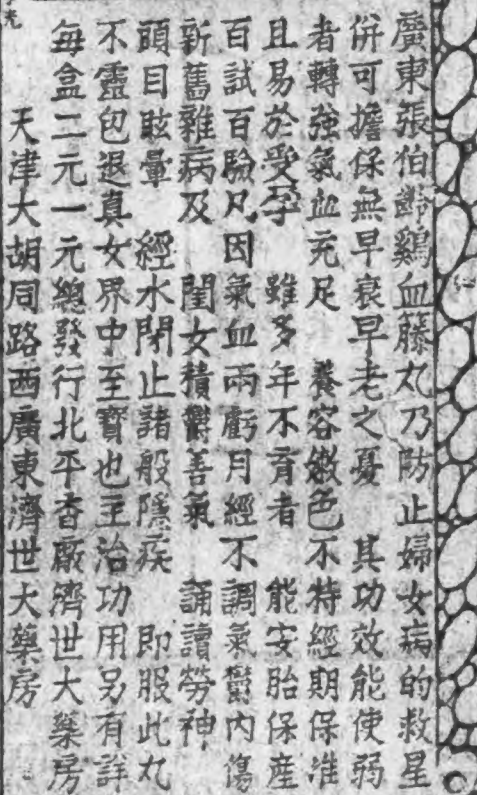 廣東張伯齡鷄血籐丸乃防止婦女病的救星
併可擔保無早衰早老之憂　其功效能使弱
者轉强氣血充足　養容嫩色不特經期保准
且易於受孕　雖多年不育者　能安胎保產
百試百驗凡因氣血兩虧月經不調氣鬱內傷
新舊雜病及　閨女積鬱善氣　誦讀勞神
頭目眩暈　經水閉止諸般隱疾　即服此丸
不靈包退真女界中至寶也主治功用另有詳
每盒二元一元總發行北平杳厰濟世大藥房
天津大胡同路西廣東濟世大藥房